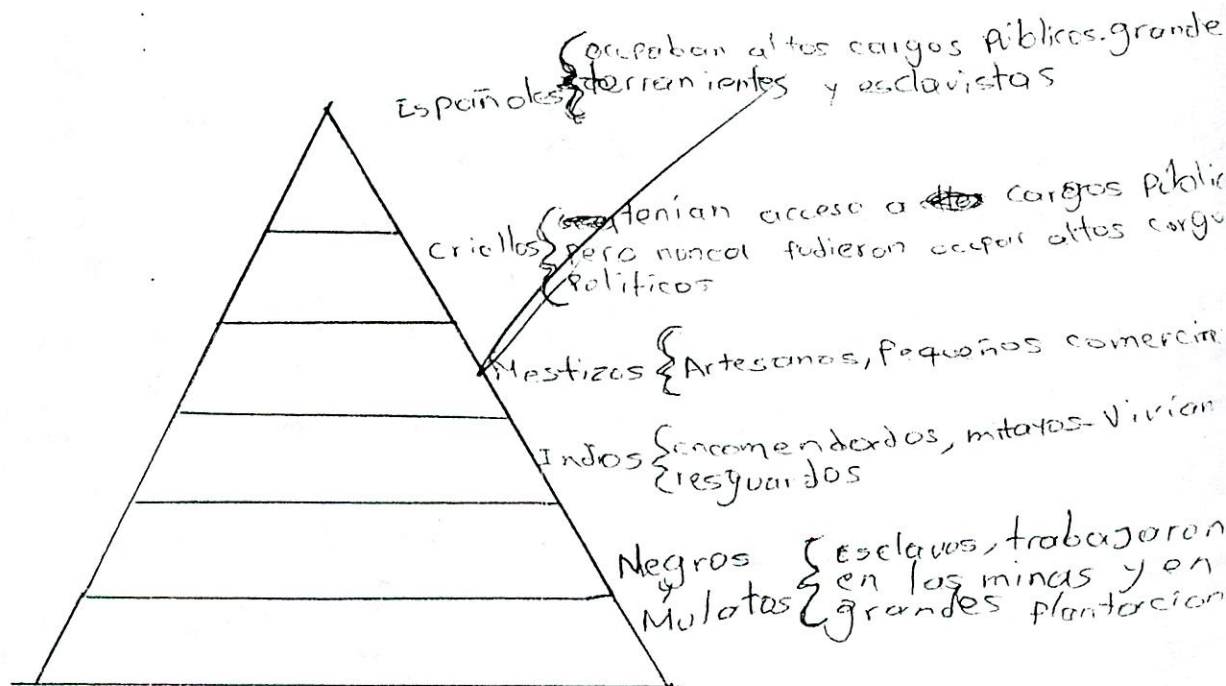 Españoles { ocupaban altos cargos públicos. grande
terranientes y esclavistas
Criollos { tenían acceso a cargos públic
pero nunca pudieron ocupar altos cargo
políticos
Mestizos { Artesanos, pequeños comercian
Indios { encomendados, mitayos - vivían
resguardos
Negros { Esclavos, trabajaron
y en las minas y en
Mulatos grandes plantacion